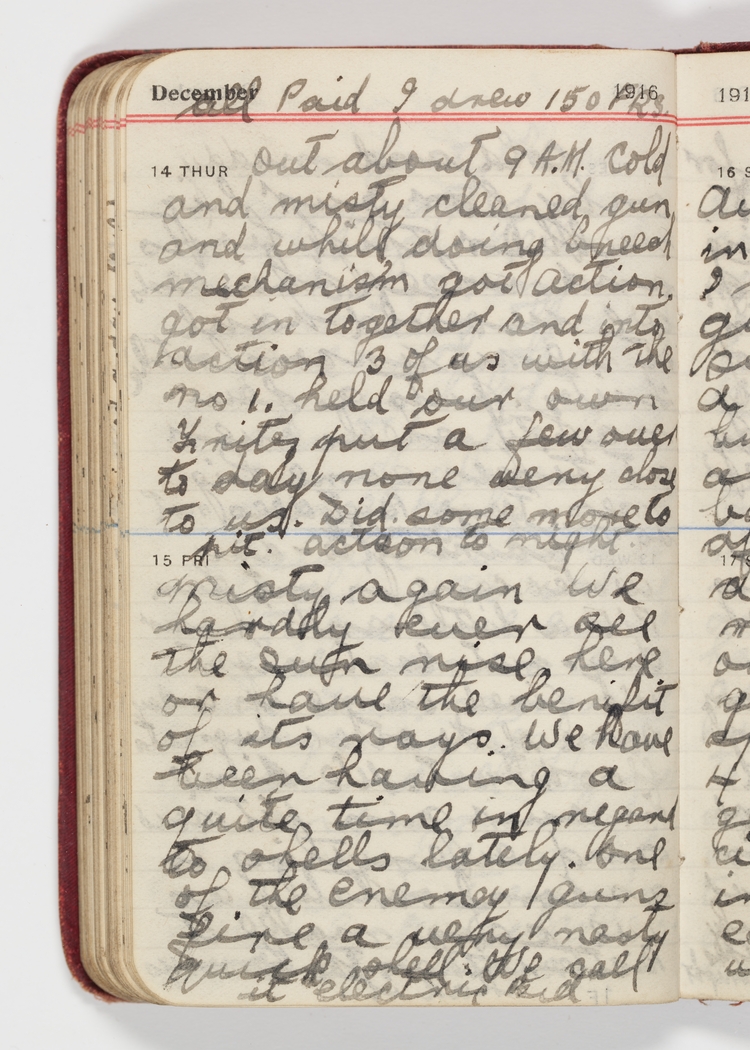 December 1916
all Paid I drew 150 Frs.
14 THUR out about 9 A.M. Cold
and misty cleaned gun
and whilst doing breech
mechanism got action,
got in together and into
action 3 of us with the
no 1. held our own
Fritz put a few over
to day none very close
to us. Did some more to
pit. action to night
15 FRI
misty again We
hardly ever see
the sun rise here
or have the benifit
of its rays. We have
been having a
quite time in regard
to shells lately. one
of the enemey guns
fire a very nasty
quick shell. We call
it electric
191
16 S
in
I
a
a
17 S